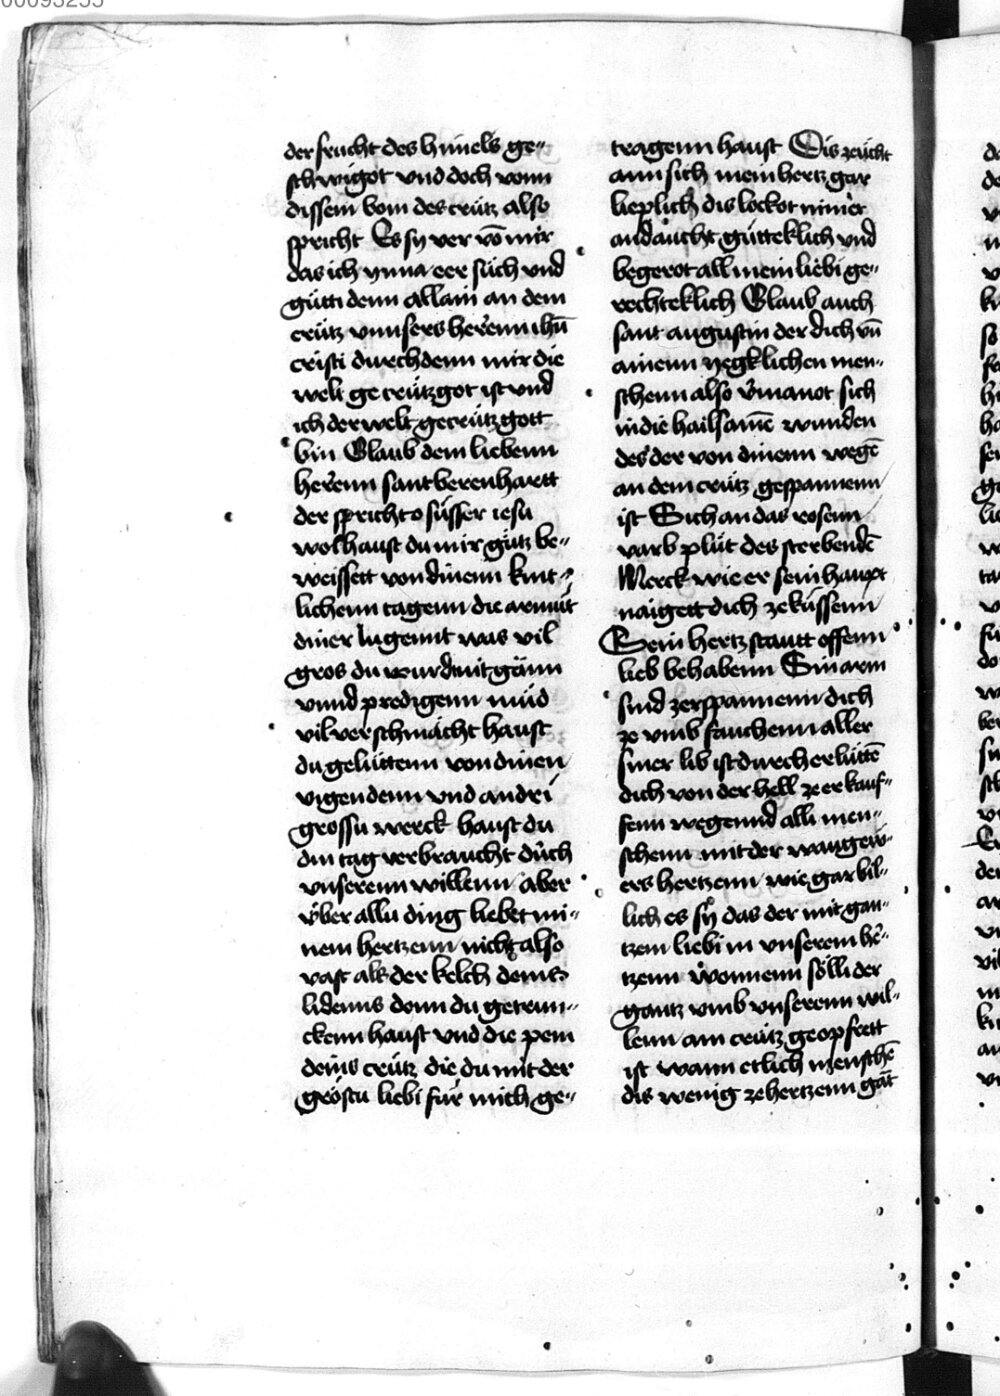 00093255
der frucht des himels ge„
schwigot vnd doch vonn
dissem bom des crútz also
spricht Es sy ver vō mir
das ich ynna eer sůch vnd
gůtti denn allain an dem
crútz vnnsers herrenn ihū
cristi durch denn mir die
welt gecrútzgot ist vnd
ich der welt gecrútzgott
bin Glaub dem liebenn
herrenn sant berenhartt
der spricht o sússer iesu
wol haust du mir gůtz be„
weissett von dinenn kint„
lichenn tagenn die armůt
diner lugennt was vil
gros du wurd mit gänn
vnnd predigenn můd
vil verschmächt haust
du gelittenn von dinen
vigendenn vnd andri
grossu werck haust du
din tag verbraucht důch
vnserenn willenn aber
vͤber allu ding liebet mi„
nem hertzenn nicht also
vast als der kelch deines
lidenns donn du getrun„
ckenn haust vnd die pein
deins crútz die du mit der
gröstu liebi fúr mich ge„
tragenn haust Dis zeúcht
ann sich mein hertz gar
lieplich dis lockot miner
andaucht gúteklich vnd
begerot all mein liebi ge„
rechteklich Glaub auch
sant augustin der dich vn̄
ainenn yegklichen men„
schenn also v̓manot sich
in die hailsamē wunden
des der von dinenn wegē
an dem crútz gespannenn
ist Sich an das rosenn
varb plůt des sterbendē
Merck wie er sein haupt
naigett dich ze kússenn
Sein hertz stautt offenn
lieb behabenn Sin arm
sind zerspannenn dich
ze vmb fauchenn aller
siner lib ist durcherlúttē
dich von der hell ze erkauf„
fenn wegennd alli men„
schenn mit der waugen
ers hertzenn wie gar bil„
lich es sy das der mit gan„
tzem liebi in vnserem her„
tzenn wonnenn sölli der
gantz vmb vnserenn wil„
lenn am crútz geopfrett
ist wann etlich menschē
dis wenig ze hertzenn gāt